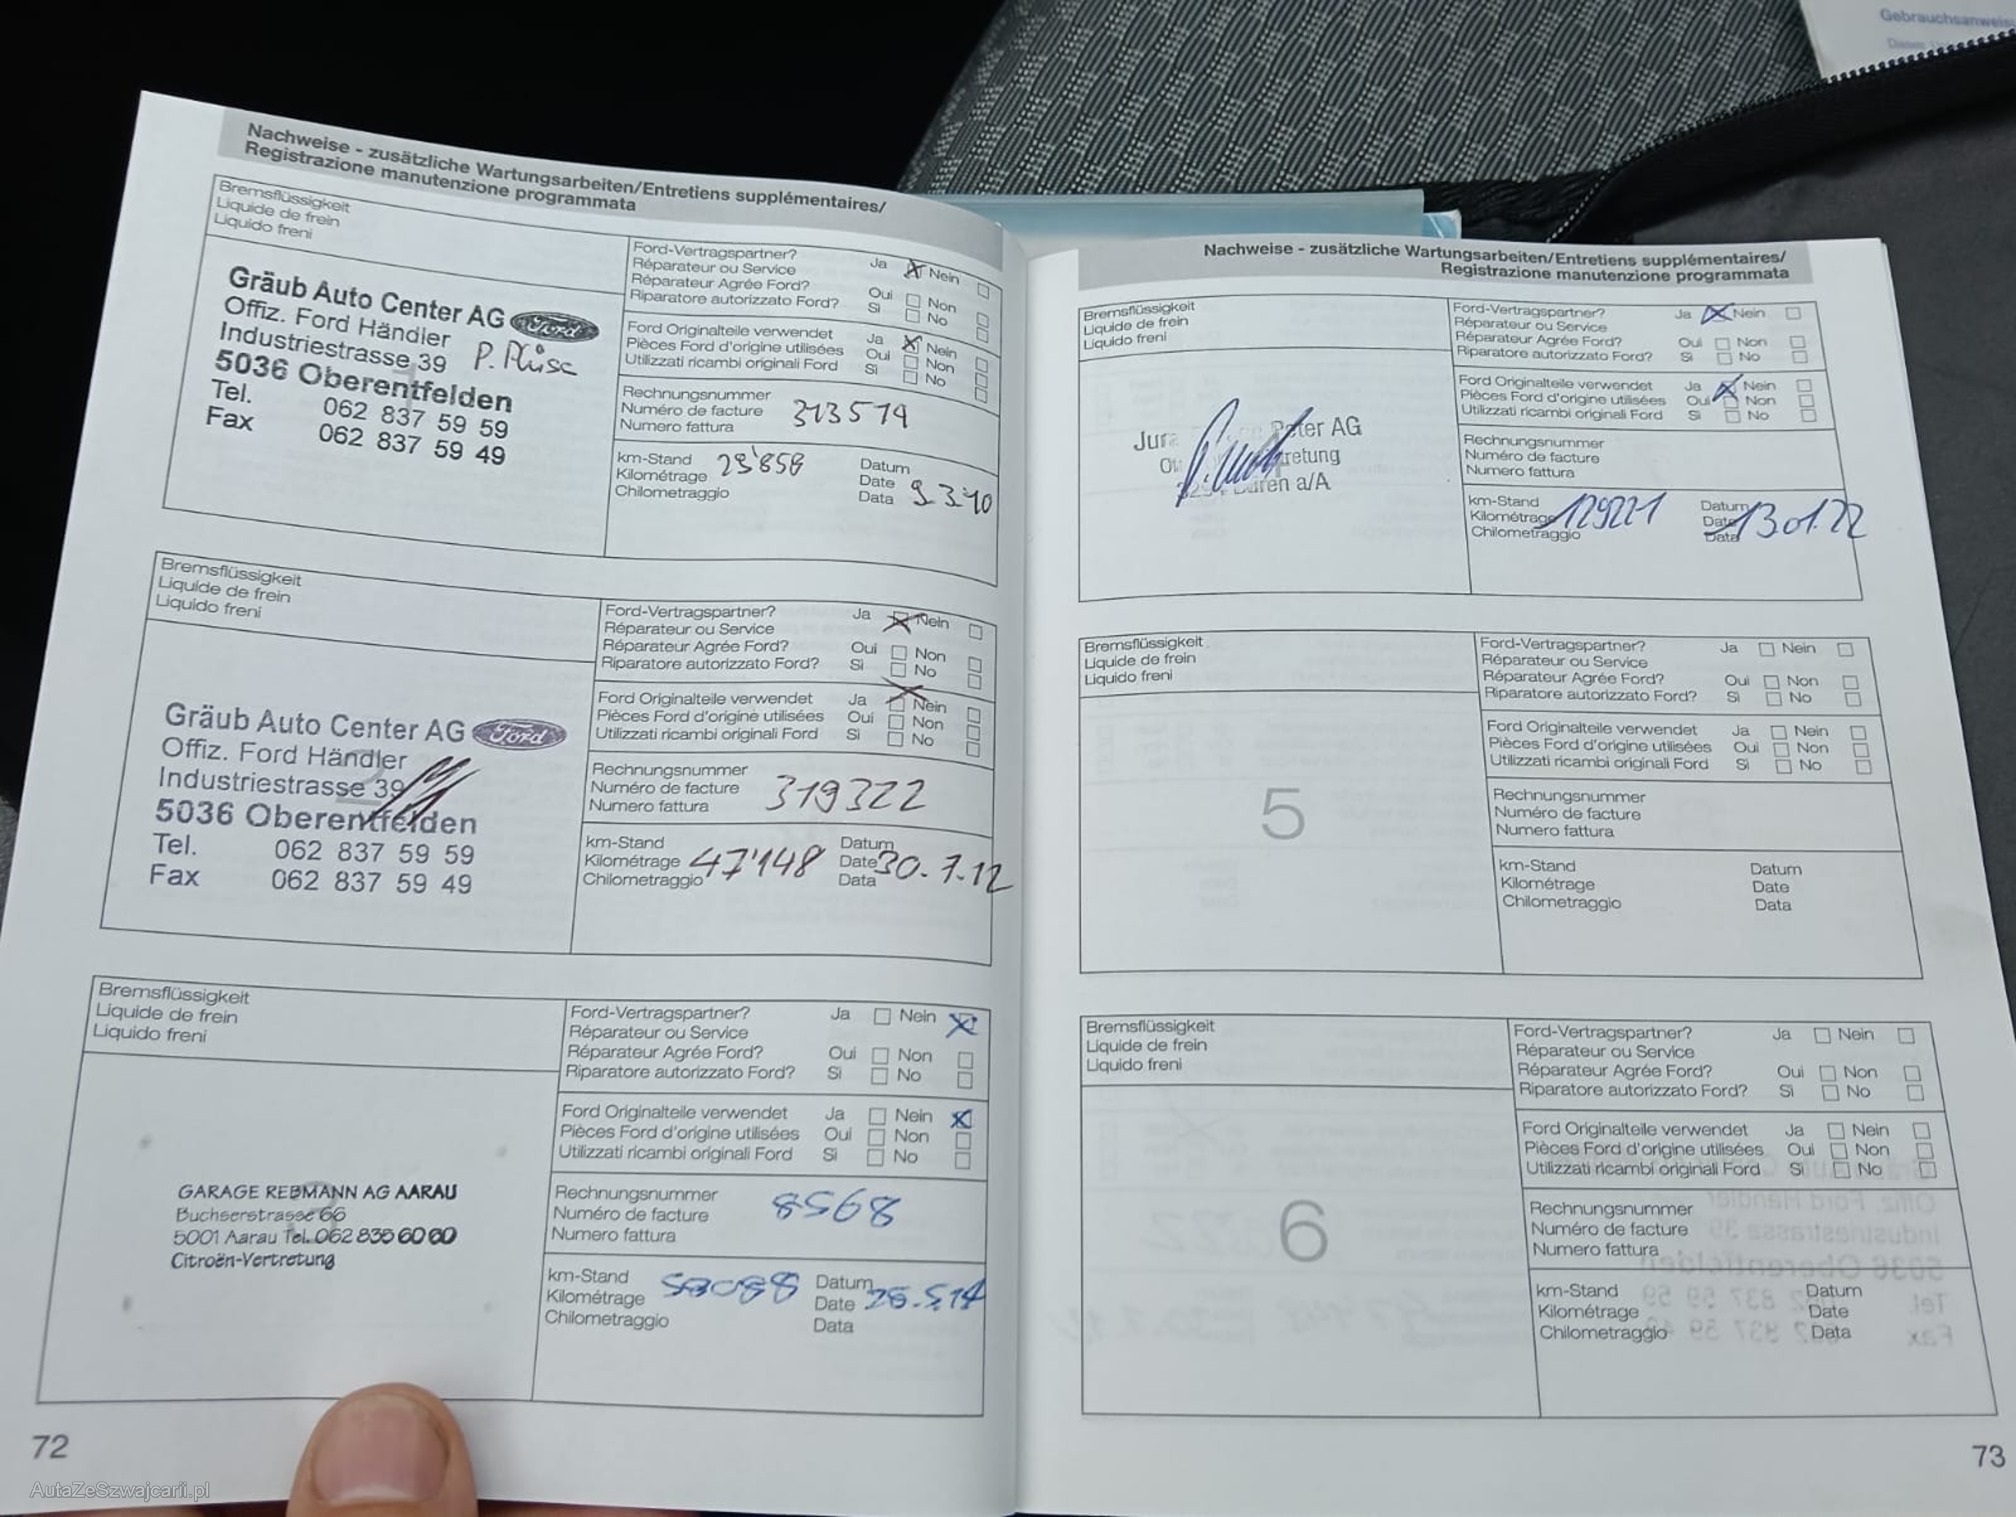 Gebrauchsanweis
Nachweise - zusätzliche Wartungsarbeiten/Entretiens supplémentaires/
Registrazione manutenzione programmata
Bremsflüssigkeit
Liquide de frein
Liquido freni
Gräub Auto Center AG Ford
Offiz. Ford Händler
Industriestrasse 39
5036 Oberentfelden
Tel. 062 837 59 59
Fax 062 837 59 49
Ford-Vertragspartner? Ja Nein
Réparateur ou Service
Réparateur Agrée Ford? Oui Non
Riparatore autorizzato Ford? Si No
Ford Originalteile verwendet Ja Nein
Pièces Ford d'origine utilisées Oui Non
Utilizzati ricambi originali Ford Si No
Rechnungsnummer
Numéro de facture 313514
Numero fattura
km-Stand 23'858 Datum
Kilométrage Date
Chilometraggio Data 9.3.10
Bremsflüssigkeit
Liquide de frein
Liquido freni
Gräub Auto Center AG Ford
Offiz. Ford Händler
Industriestrasse 39
5036 Oberentfelden
Tel. 062 837 59 59
Fax 062 837 59 49
Ford-Vertragspartner? Ja Nein
Réparateur ou Service
Réparateur Agrée Ford? Oui Non
Riparatore autorizzato Ford? Si No
Ford Originalteile verwendet Ja Nein
Pièces Ford d'origine utilisées Oui Non
Utilizzati ricambi originali Ford Si No
Rechnungsnummer
Numéro de facture 319322
Numero fattura
km-Stand Datum
Kilométrage 47'148 Date 30.7.12
Chilometraggio Data
Bremsflüssigkeit
Liquide de frein
Liquido freni
3
GARAGE REBMANN AG AARAU
Buchserstrasse 66
5001 Aarau Tel. 062 836 60 60
Citroën-Vertretung
Ford-Vertragspartner? Ja Nein
Réparateur ou Service
Réparateur Agrée Ford? Oui Non
Riparatore autorizzato Ford? Si No
Ford Originalteile verwendet Ja Nein
Pièces Ford d'origine utilisées Oui Non
Utilizzati ricambi originali Ford Si No
Rechnungsnummer
Numéro de facture 8568
Numero fattura
km-Stand Datum
Kilométrage Date
Chilometraggio Data
72
Nachweise - zusätzliche Wartungsarbeiten/Entretiens supplémentaires/
Registrazione manutenzione programmata
Bremsflüssigkeit
Liquide de frein
Liquido freni
Jura Peter AG
Ford-Vertragspartner? Ja Nein
Réparateur ou Service
Réparateur Agrée Ford? Oui Non
Riparatore autorizzato Ford? Si No
Ford Originalteile verwendet Ja Nein
Pièces Ford d'origine utilisées Oui Non
Utilizzati ricambi originali Ford Si No
Rechnungsnummer
Numéro de facture
Numero fattura
km-Stand Datum
Kilométrage 129221 Date 13.01.22
Chilometraggio Data
Bremsflüssigkeit
Liquide de frein
Liquido freni
5
Ford-Vertragspartner? Ja Nein
Réparateur ou Service
Réparateur Agrée Ford? Oui Non
Riparatore autorizzato Ford? Si No
Ford Originalteile verwendet Ja Nein
Pièces Ford d'origine utilisées Oui Non
Utilizzati ricambi originali Ford Si No
Rechnungsnummer
Numéro de facture
Numero fattura
km-Stand Datum
Kilométrage Date
Chilometraggio Data
Bremsflüssigkeit
Liquide de frein
Liquido freni
6
Ford-Vertragspartner? Ja Nein
Réparateur ou Service
Réparateur Agrée Ford? Oui Non
Riparatore autorizzato Ford? Si No
Ford Originalteile verwendet Ja Nein
Pièces Ford d'origine utilisées Oui Non
Utilizzati ricambi originali Ford Si No
Rechnungsnummer
Numéro de facture
Numero fattura
km-Stand Datum
Kilométrage Date
Chilometraggio Data
73
AutaZeSzwajcarii.pl